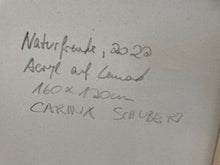 Naturfreunde, 2022
Acryl auf Leinwand
160 x 120cm
CARINA SCHUBERT